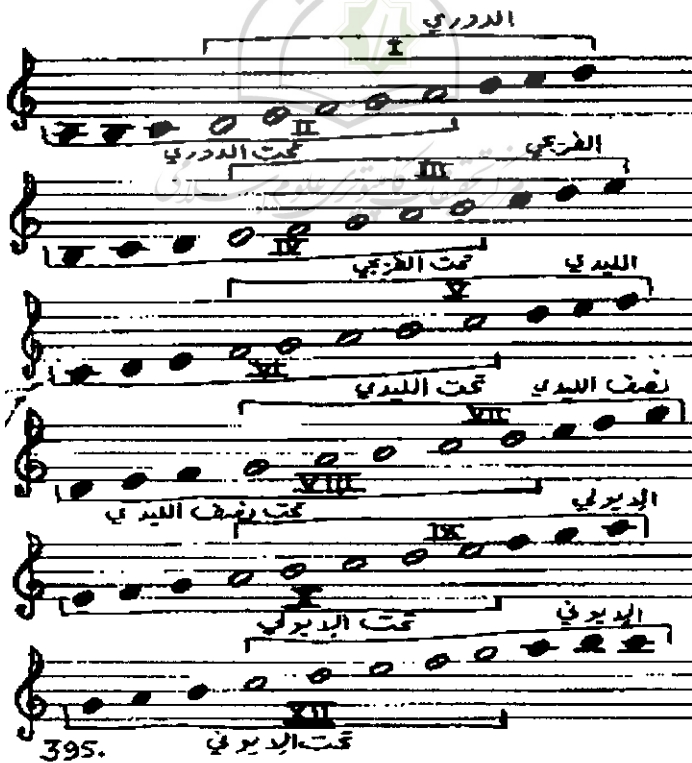 الدوري
I
II
تحت الدوري
الفريجي
III
IV
تحت الفريجي
الليدي
V
VI
تحت الليدي
نصف الليدي
VII
VIII
تحت نصف الليدي
الايولي
IX
X
تحت الايولي
الايوني
XII
تحت الايوني
395.